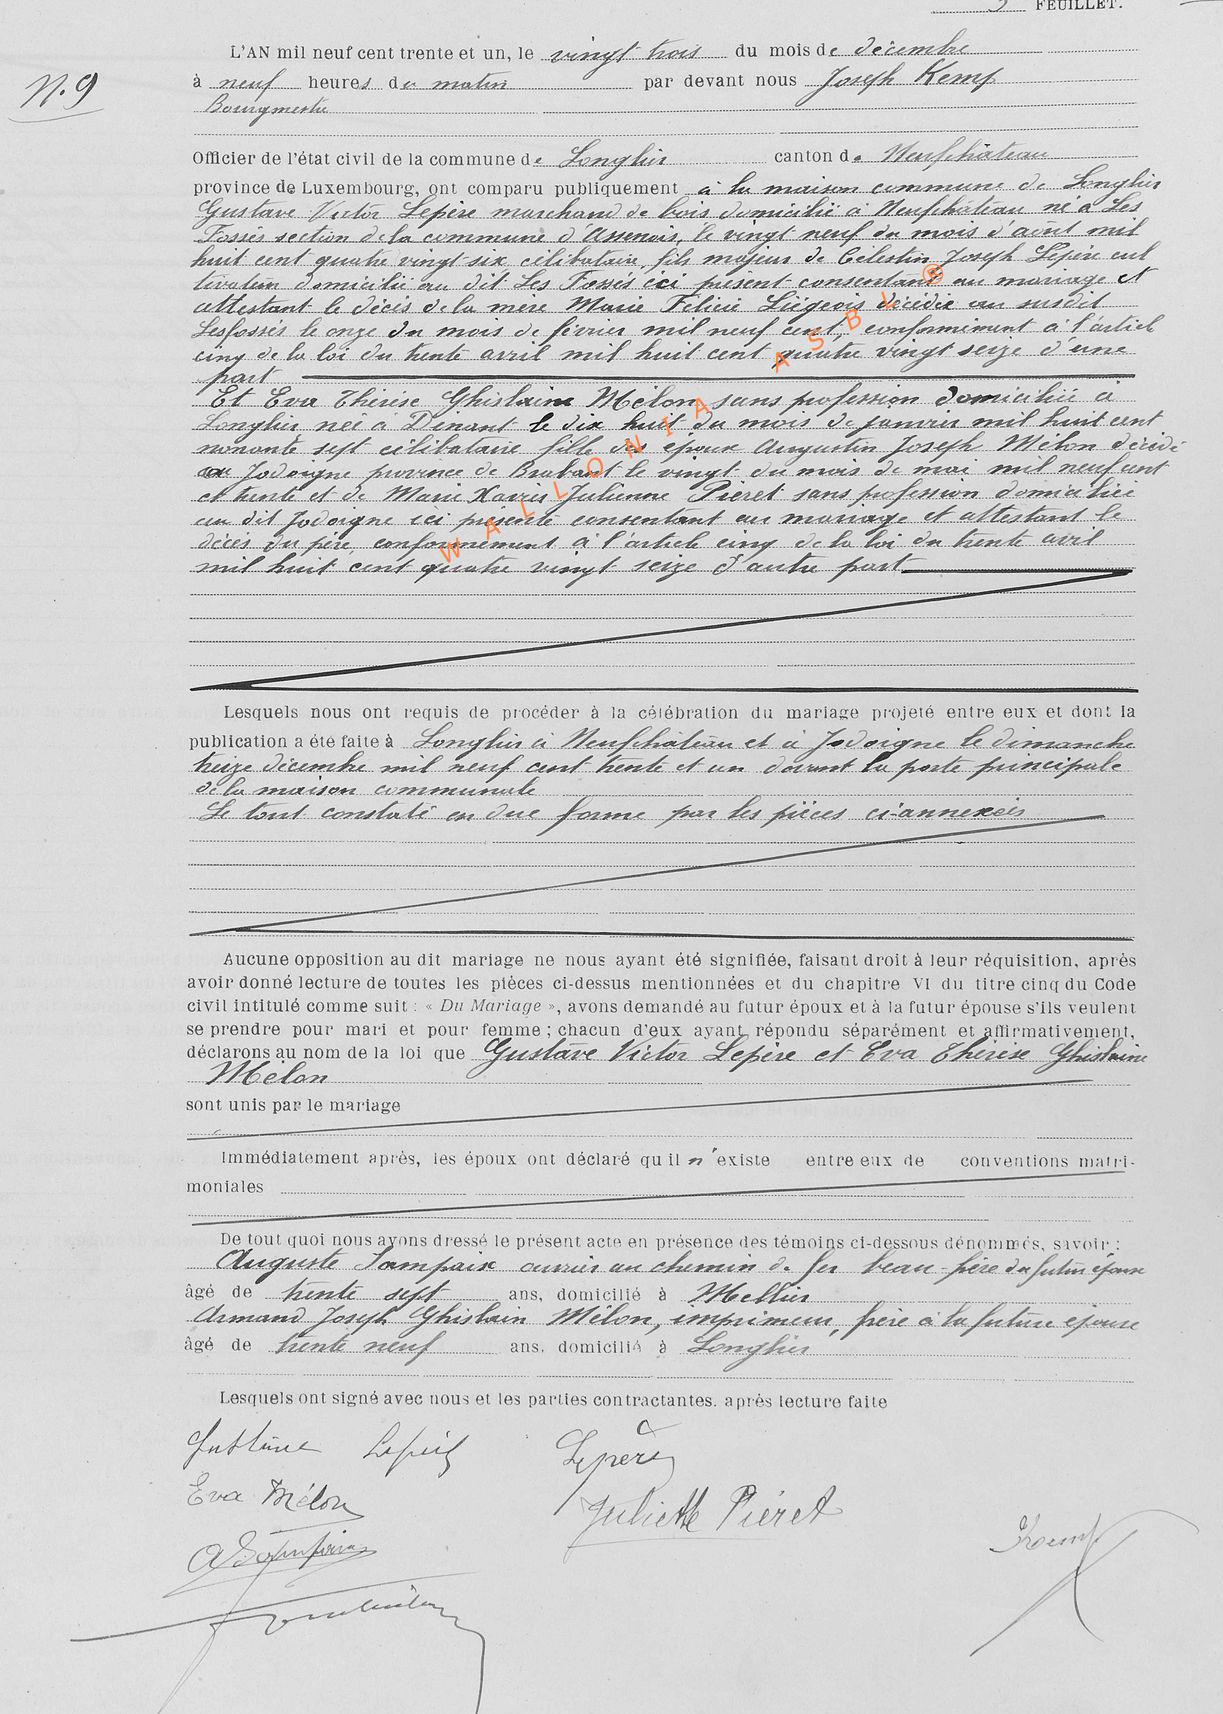 5 FEUILLET.
L'AN mil neuf cent trente et un, le vingt trois du mois de décembre
N. 9
à neuf heures du matin par devant nous Joseph Kemp
Bourgmestre
Officier de l'état civil de la commune de Longlier canton de Neufchâteau
province de Luxembourg, ont comparu publiquement à la maison commune de Longlier
Gustave Victor Lepère marchand de bois domicilié à Neufchâteau né à Les
Fossés section de la commune d'Assenois, le vingt neuf du mois d'août mil
huit cent quatre vingt six célibataire, fils majeur de Célestin Joseph Lepère cul
tivateur domicilié au dit Les Fossés ici présent consentant au mariage et
attestant le décès de la mère Marie Félicie Liégeois décédée au susdit
Lesfossés le onze du mois de février mil neuf cent, conformément à l'article
cinq de la loi du trente avril mil huit cent quatre vingt seize d'une
part
Et Eva Thérèse Ghislaine Mélon sans profession domiciliée à
Longlier née à Dinant le dix huit du mois de janvier mil huit cent
nonante sept célibataire fille des époux Augustin Joseph Mélon décédé
au Jodoigne province de Brabant le vingt du mois de mai mil neuf cent
et trente et de Marie Xavier Julienne Pieret sans profession domiciliée
au dit Jodoigne ici présente consentant au mariage et attestant le
décès du père, conformément à l'article cinq de la loi du trente avril
mil huit cent quatre vingt seize d'autre part
WALLONIA ASBL ®
Lesquels nous ont requis de procéder à la célébration du mariage projeté entre eux et dont la
publication a été faite à Longlier à Neufchâteau et à Jodoigne le dimanche
treize décembre mil neuf cent trente et un devant la porte principale
de la maison communale
Le tout constaté en due forme par les pièces ci-annexées
Aucune opposition au dit mariage ne nous ayant été signifiée, faisant droit à leur réquisition, après
avoir donné lecture de toutes les pièces ci-dessus mentionnées et du chapitre VI du titre cinq du Code
civil intitulé comme suit : « Du Mariage », avons demandé au futur époux et à la future épouse s'ils veulent
se prendre pour mari et pour femme ; chacun d'eux ayant répondu séparément et affirmativement,
déclarons au nom de la loi que Gustave Victor Lepère et Eva Thérèse Ghislaine
Mélon
sont unis par le mariage
Immédiatement après, les époux ont déclaré qu'il n'existe entre eux de conventions matri-
moniales
De tout quoi nous avons dressé le présent acte en présence des témoins ci-dessous dénommés, savoir :
Auguste Sampaix ouvrier au chemin de fer beau-frère du futur époux
âgé de trente sept ans, domicilié à Mellier
Armand Joseph Ghislain Mélon, imprimeur, frère à la future épouse
âgé de trente neuf ans, domicilié à Longlier
Lesquels ont signé avec nous et les parties contractantes, après lecture faite
Gustave Lepère Lepère
Eva Mélon Juliette Piéret
A Sampaix Kemp